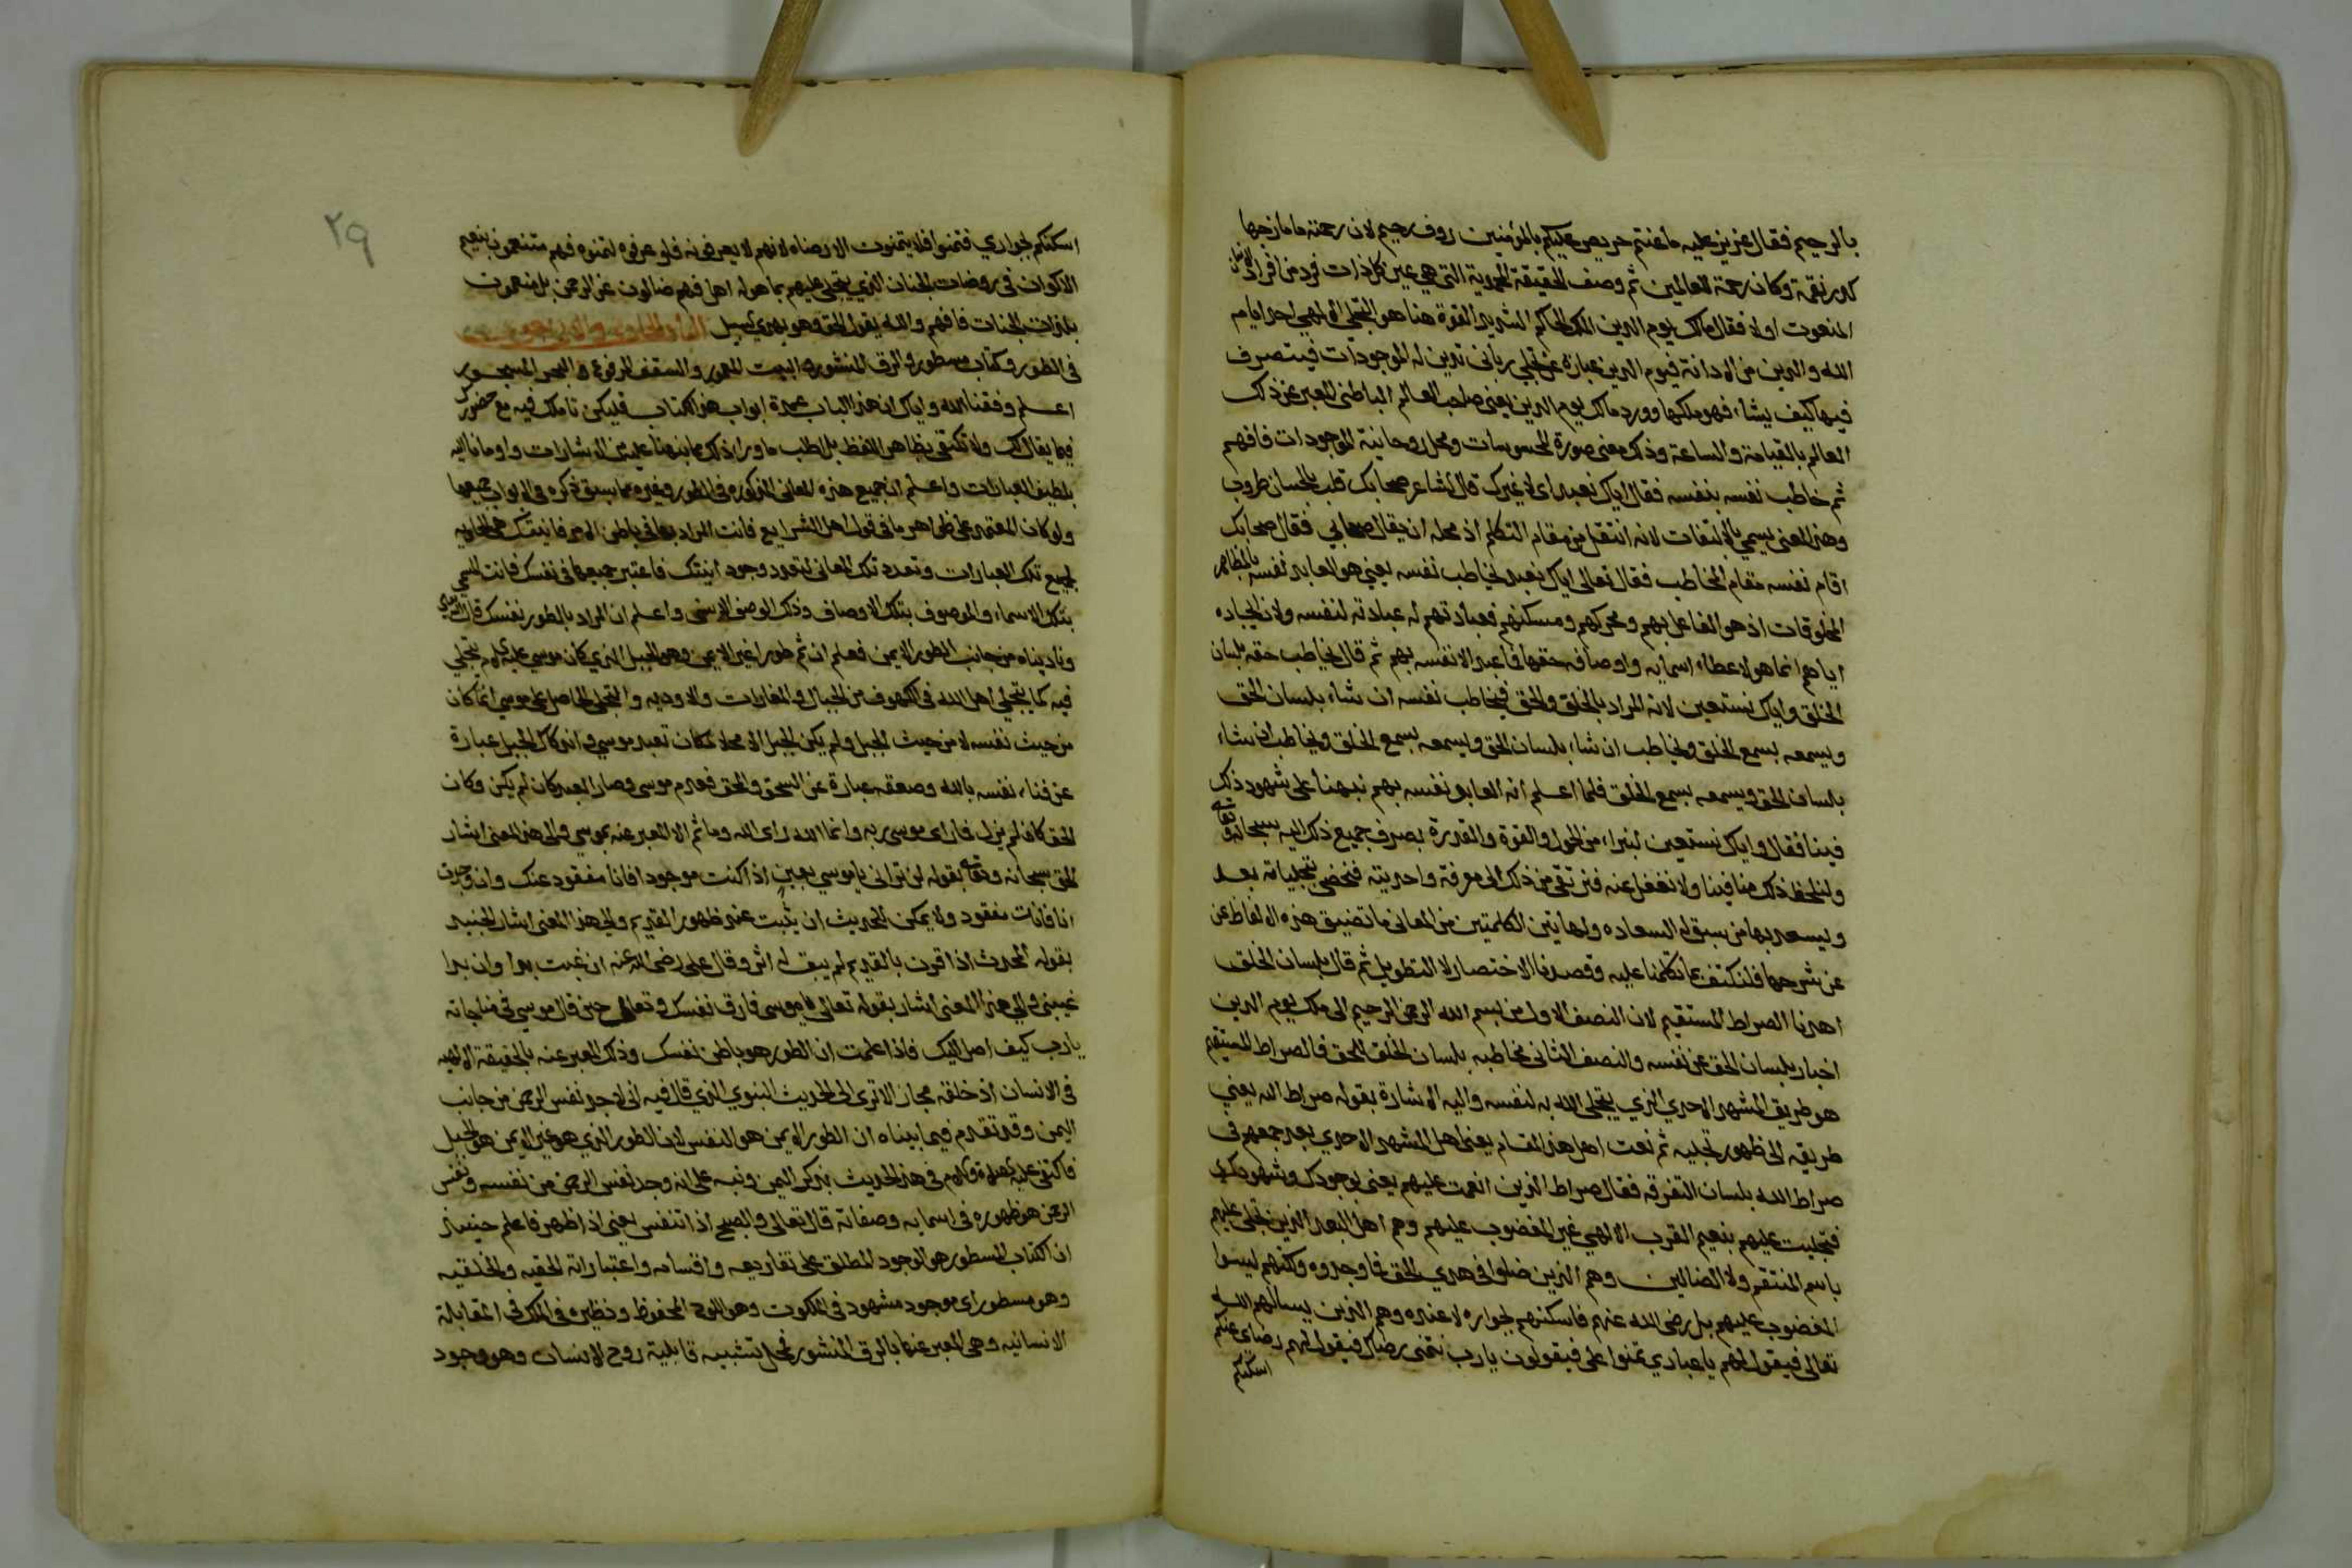 بالرحيم فقال عزيز عليه ما عنتم حريص عليكم بالمؤمنين روف رحيم لان رحمته ما مازجها
كدر نقمة وكان رحمة للعالمين ثم وصف الحقيقة المحمدية التي هي عين كل ذات فرد من افراد
المنعوت اولا فقال مالك يوم الدين الملك الحاكم الشديد القوة هنا هو التجلي الالهي احد ايام
الله والدين من الادانة فيوم الدين عبارة عن تجلي رباني تدين له الموجودات فيتصرف
فيها كيف يشاء فهو ملكها وورد مالك يوم الدين يعني صاحب العالم الباطني المعبر عن ذلك
العالم بالقيامة والساعة وذلك معنى صورة المحسوسات ومحل روحانية الموجودات فافهم
ثم خاطب نفسه بنفسه فقال اياك نعبد اي لا غيرك قال الشاعر طحا بك قلب بالحسان طروب
وهذا المعنى يسمي بالالتفات لانه انتقل من مقام التكلم اذ محله ان يقال طحا بي فقال طحا بك
اقام نفسه مقام المخاطب فقال تعالى اياك نعبد يخاطب نفسه يعني هو العابد نفسه بالمظاهر
المخلوقات اذ هو الفاعل بهم ومحركهم ومسكنهم فعبادتهم له عبادته لنفسه ولان ايجاده
اياهم انما هو لاعطاء اسمايه واوصافه حقها فما عبد الا نفسه بهم ثم قال يخاطب حقه بلسان
الخلق واياك نستعين لانه المراد بالخلق والحق فيخاطب نفسه ان شاء بلسان الحق
ويسمعه بسمع الخلق ويخاطب ان شاء بلسان الحق ويسمعه بسمع الخلق ويخاطب ان شاء
بلسان الحق ويسمعه بسمع الخلق فلما اعلم انه العابد نفسه بهم نبهنا على شهود ذلك
فينا فقال واياك نستعين لنبراء من الحول والقوة والقدرة بصرف جميع ذلك اليه سبحانه وتعالى
ولنلحظ ذلك منا فينا ولا نغفل عنه فنرتقي من ذلك الى معرفة واحديته فنحضى بتجلياته بعد
ويسعد بها من سبق له السعاده ولهاتين الكلمتين من المعاني ما تضيق هذه الالفاظ عن
عن شرحها فلنكتف بما تكلمنا عليه وقصدنا الاختصار لا التطويل ثم قال بلسان الخلق
اهدنا الصراط المستقيم لان النصف الاول من بسم الله الرحمن الرحيم الى ملك يوم الدين
اخبار بلسان الحق عن نفسه والنصف الثاني مخاطبه بلسان الخلق للحق فالصراط المستقيم
هو طريق المشهد الاحدي الذي يتجلى الله به لنفسه واليه الاشارة بقوله صراط الله يعني
طريقه الى ظهور تجليه ثم نعت اهل هذا المقام يعني اهل المشهد الاحدي بعد جمعهم في
صراط الله بلسان التفرقه فقال صراط الذين انعمت عليهم يعني بوجودك وشهودك
فتجليت عليهم بنعيم القرب الالهي غير المغضوب عليهم وهم اهل البعد الذين تجلى عليهم
باسم المنتقم ولا الضالين وهم الذين ضلوا في هدي الحق فما وجدوه ولكنهم ليسوا
المغضوب عليهم بل رضي الله عنهم فاسكنهم بجواره لا عنده وهم الذين يسالهم الله
تعالى فيقول لهم يا عبادي تمنوا علي فيقولون يا رب نتمنى رضاك فيقول لهم رضاي عنكم
اسكنكم
٢٩
اسكنكم بجواري فتمنوا فلا يتمنون الا رضاه لانهم لا يعرفونه فلو عرفوه لتمنوه فهم متنعمون بنعيم
الاكوان في روضات الجنان الذي يتجلى عليهم بما هو له اهل فهم ضالون عن الرحمن بل منعمون
بلذات الجنات فافهم والله يقول الحق وهو يهدي السبيل
في الطور وكتاب مسطور والرق المنشور والبيت المعمور والسقف المرفوع والبحر المسجور
اعلم وفقنا الله واياك ان هذا الباب عمدة ابواب هذا الكتاب فليكن تاملك فيه مع حضورك
فيما يقال لك ولا تكتفي بظاهر اللفظ بل اطلب ما وراء ذلك مما نبهنا عليه من الاشارات واومانا اليه
بلطيف العبارات واعلم ان جميع هذه المعاني المذكورة في الطور وغيره مما سبق ذكره في الابواب جميعها
ولو كان المعتمد على ظواهر ما في قول اهل الشرايع فانت المراد بها في باطن الامر فانيتك هي الحاويه
لجميع تلك العبارات وتعدد تلك المعاني لتعدد وجود انيتك فاعتبر جميعها في نفسك فانت المسمى
بتلك الاسماء والموصوف بتلك الاوصاف وذلك الوصف الاسنى واعلم ان المراد بالطور نفسك قال الله تعالى
وناديناه من جانب الطور الايمن فعلم ان ثم طورا غير الايمن وهو الجبل الذي كان موسى عليه السلام يتجلي
فيه كما يتجلى اهل الله في الكهوف من الجبال والمغارات والاوديه والتجلي الحاصل على موسى انما كان
من حيث نفسه لا من حيث الجبل ولم يكن الجبل الا محلا لمكان تعبد موسى وانما كان الجبل عبارة
عن فناء نفسه بالله وصعقه عبارة عن السحق والمحق فعدم موسى وصار العبد كان لم يكن وكان
الحق كان لم يزل فما راى موسى ربه وانما الله راى الله وما ثم الا المعبر عنه بموسى والى هذا المعنى اشار
الحق سبحانه وتعالى بقوله لن تراني يا موسى يعني اذا كنت موجودا فانا مفقود عنك وان وجدت
انا فانت مفقود ولا يمكن للحديث ان يثبت عند ظهور القديم والى هذا المعنى اشار الجنيد
بقوله المحدث اذا قرن بالقديم لم يبق له اثر وقال علي رضي الله عنه ان غبت بدا وان بدا
غيبني والى هذا المعنى اشار بقوله تعالى يا موسى فارق نفسك وتعال حين قال موسى في مناجاته
يا رب كيف اصل اليك فاذا علمت ان الطور هو باطن نفسك وذلك المعبر عنه بالحقيقة الالهيه
في الانسان اذ خلقه مجاز الا ترى الى الحديث النبوي الذي قال فيه اني لاجد نفس الرحمن من جانب
اليمن وقد تقدم فيما بيناه ان الطور الايمن هو النفس لان الطور الذي هو غير الايمن هو الجبل
فاكتفى عليه الصلاة والسلام في هذا الحديث بذكر اليمن ونبه على انه وجد نفس الرحمن من نفسه ونفس
الرحمن هو ظهوره في اسمايه وصفاته قال تعالى والصبح اذا تنفس يعني اذا ظهر فاعلم حينيذ
ان الكتاب المسطور هو الوجود المطلق على تفاريعه واقسامه واعتباراته الحقيه والخلقيه
وهو مسطور اي موجود مشهود في الملكوت وهو اللوح المحفوظ ونظيره في الملك في المقابلة
الانسانيه وهي المعبر عنها بالرق المنشور فمحل تشبيه قابلية روح الانسان وهو وجود